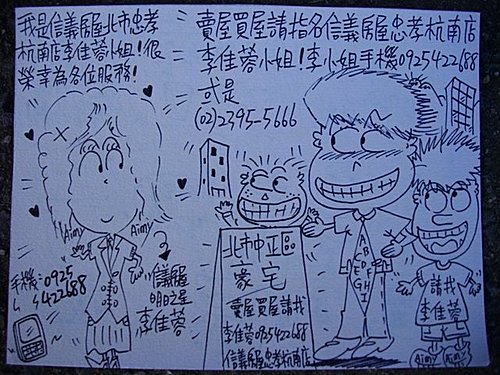 我是信義房屋北市忠孝
杭南店李佳蓉小姐!很
榮幸為各位服務!
賣屋買屋請指名信義房屋忠孝杭南店
李佳蓉小姐!李小姐手機0925422688
或是
(02)2395-5666
Aimy
Aimy
手機:0925
422688
信義房屋
明日之星
李佳蓉
北市中正區
豪宅
賣屋買屋請找
李佳蓉0925422688
信義房屋忠孝杭南店
A
B
C D
E F
G H
I
請找
李佳蓉
Aimy
Aimy